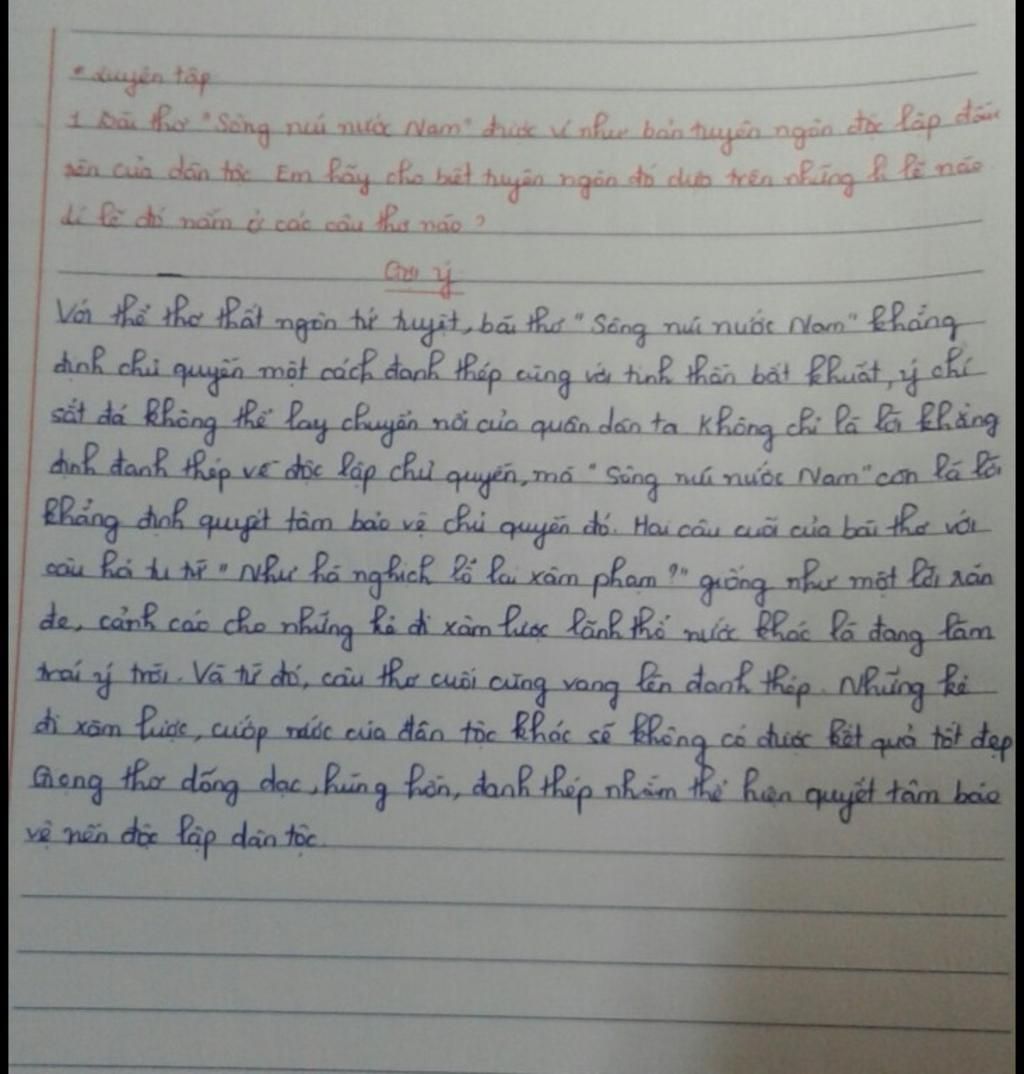 * Luyện tập
1 Bài thơ "Sông núi nước Nam" được ví như bản tuyên ngôn độc lập đầu
tiên của dân tộc Em hãy cho biết tuyên ngôn đó dựa trên những lí lẽ nào
Lí lẽ đó nằm ở các câu thơ nào?
Gợi ý
Với thể thơ thất ngôn tứ tuyệt, bài thơ "Sông núi nước Nam" khẳng
định chủ quyền một cách đanh thép cùng với tinh thần bất khuất, ý chí
sắt đá không thể lay chuyển nổi của quân dân ta Không chỉ là lời khẳng
định đanh thép về độc lập chủ quyền, mà "Sông núi nước Nam" còn là lời
khẳng định quyết tâm bảo vệ chủ quyền đó. Hai câu cuối của bài thơ với
câu hỏi tu từ "Như hà nghịch lỗ lai xâm phạm?" giống như một lời răn
đe, cảnh cáo cho những kẻ đi xâm lược lãnh thổ nước khác là đang làm
trái ý trời. Và từ đó, câu thơ cuối cùng vang lên đanh thép. Những kẻ
đi xâm lược, cướp nước của dân tộc khác sẽ không có được kết quả tốt đẹp
Giọng thơ dõng dạc, hùng hồn, đanh thép nhằm thể hiện quyết tâm bảo
vệ nền độc lập dân tộc.